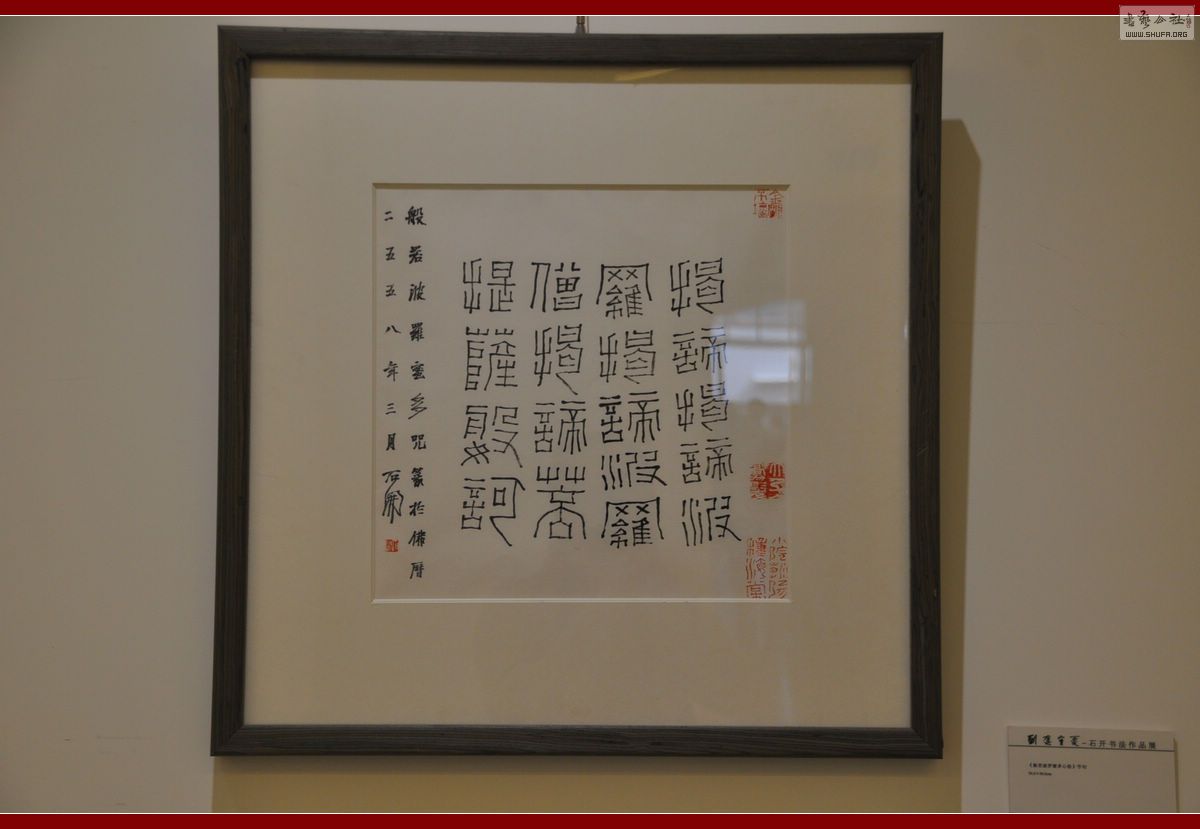 揭諦揭諦波
羅揭諦波羅
僧揭諦菩
提薩婆訶
般若波羅蜜多咒篆於佛曆
二五五八年三月石開
石开书法作品展
《般若波罗蜜多心经》节句
書藝公社
WWW.SHUFA.ORG